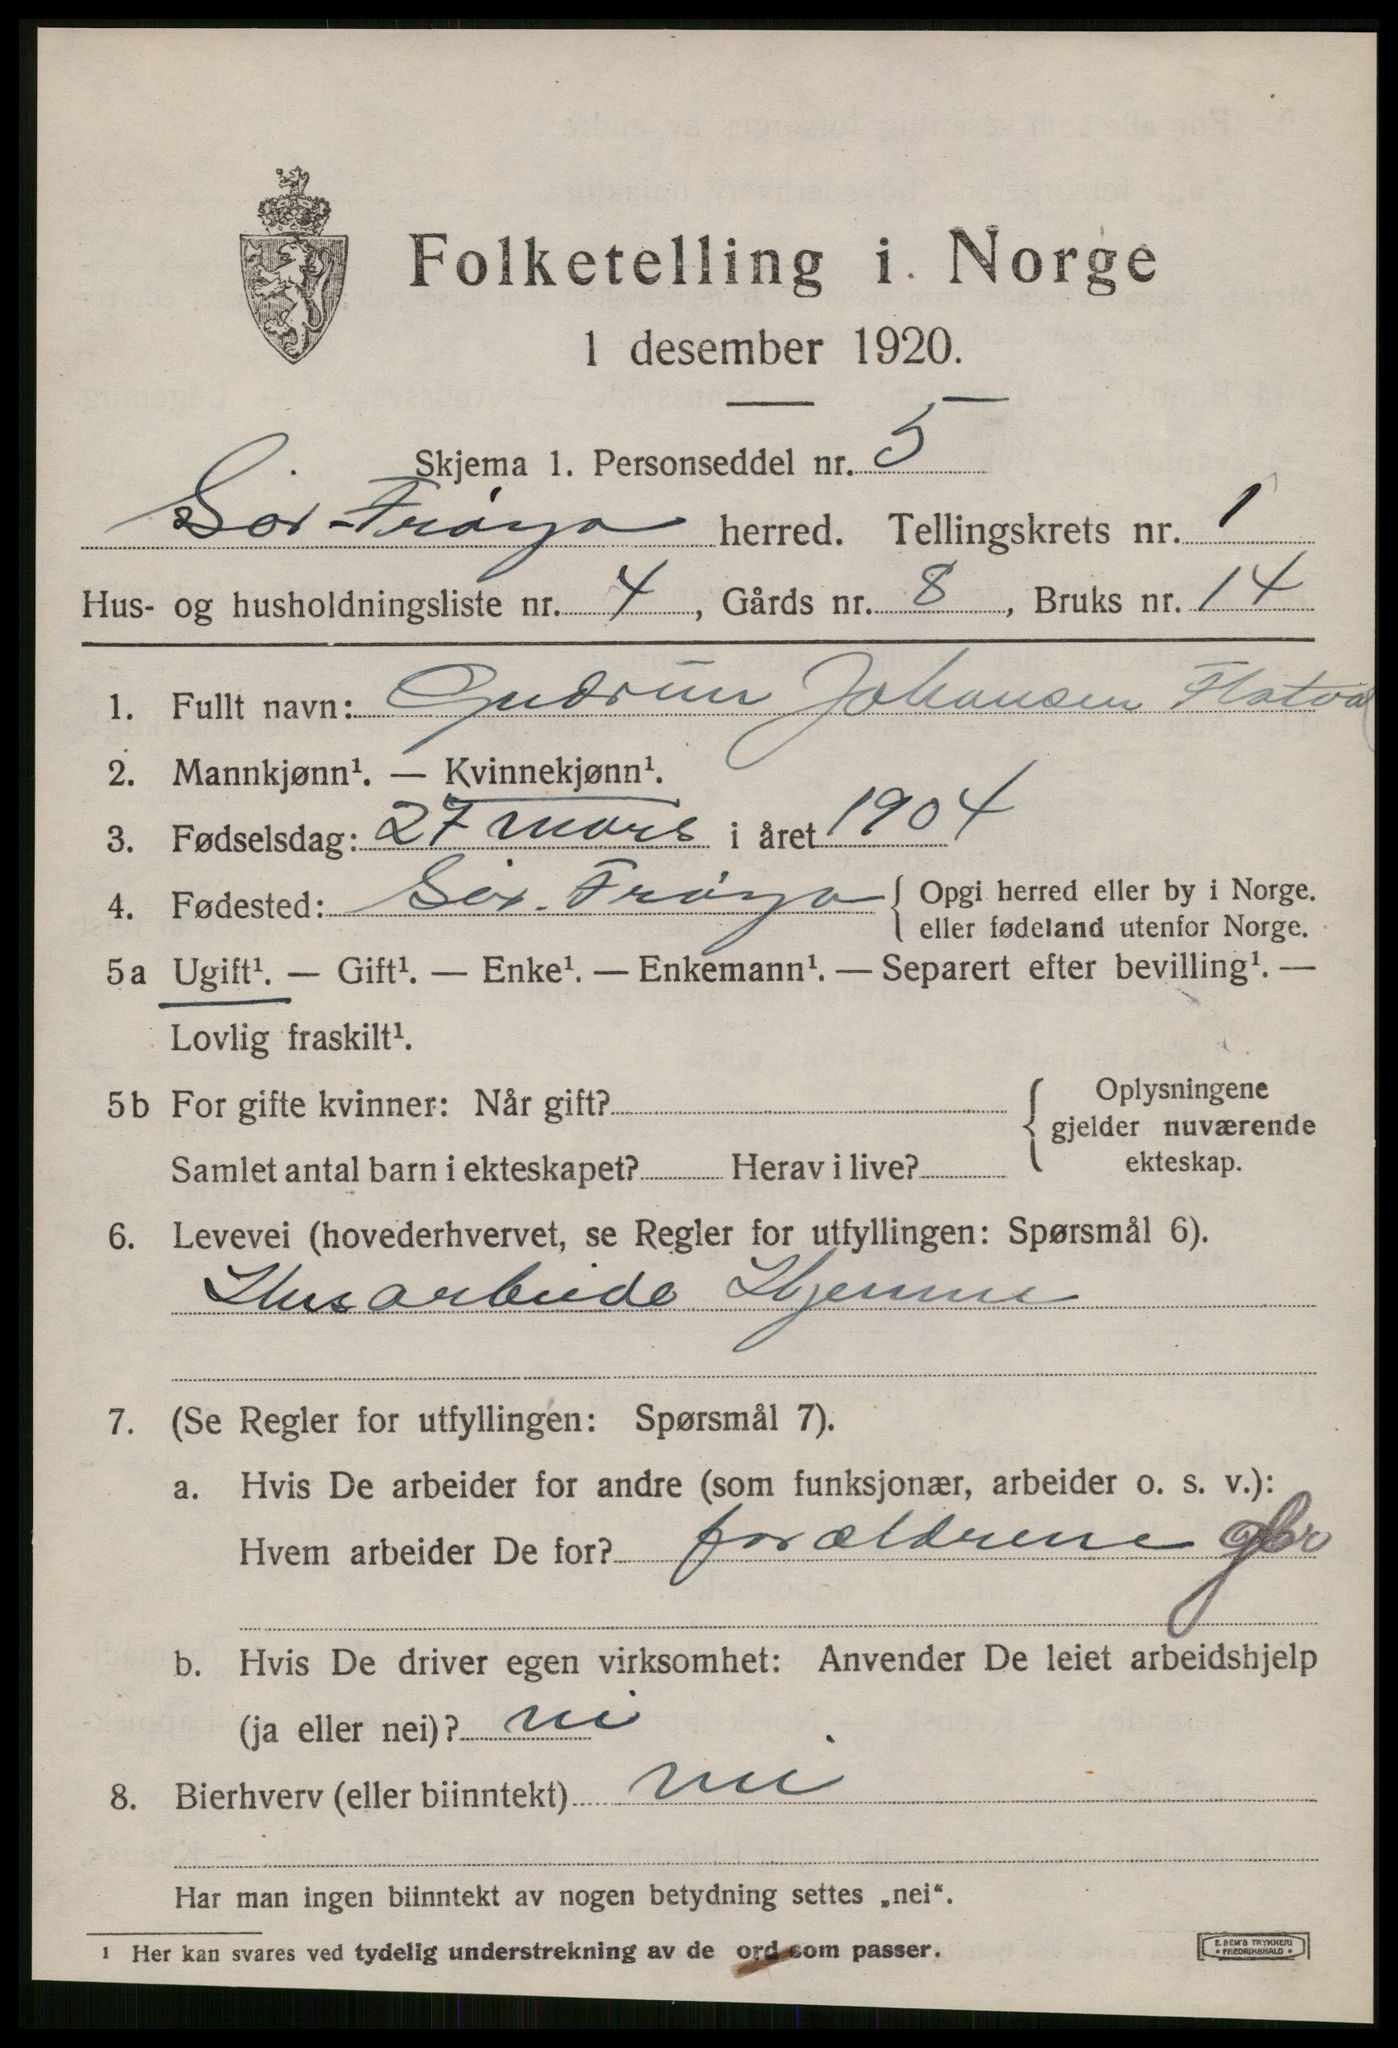 Folketelling i Norge
1 desember 1920.
Skjema 1. Personseddel nr. 5
Sør-Frøya herred. Tellingskrets nr. 1
Hus- og husholdningsliste nr. 4, Gårds nr. 8, Bruks nr. 14
1. Fullt navn: Gudrun Johansen Flatval
2. Mannkjønn¹. — Kvinnekjønn¹.
3. Fødselsdag: 27 mars i året 1904
4. Fødested: Sør-Frøya { Opgi herred eller by i Norge.
eller fødeland utenfor Norge.
5a Ugift¹. — Gift¹. — Enke¹. — Enkemann¹. — Separert efter bevilling¹. —
Lovlig fraskilt¹.
5b For gifte kvinner: Når gift?
Samlet antal barn i ekteskapet? Herav i live?
{ Oplysningene
gjelder nuværende
ekteskap.
6. Levevei (hovederhvervet, se Regler for utfyllingen: Spørsmål 6).
Husarbeide Hjemme
7. (Se Regler for utfyllingen: Spørsmål 7).
a. Hvis De arbeider for andre (som funksjonær, arbeider o. s. v.):
Hvem arbeider De for? forældrene gbr
b. Hvis De driver egen virksomhet: Anvender De leiet arbeidshjelp
(ja eller nei)? nei
8. Bierhverv (eller biinntekt) nei
Har man ingen biinntekt av nogen betydning settes „nei“.
¹ Her kan svares ved tydelig understrekning av de ord som passer.
E. SEM'S TRYKKERI
• FREDRIKSHALD •